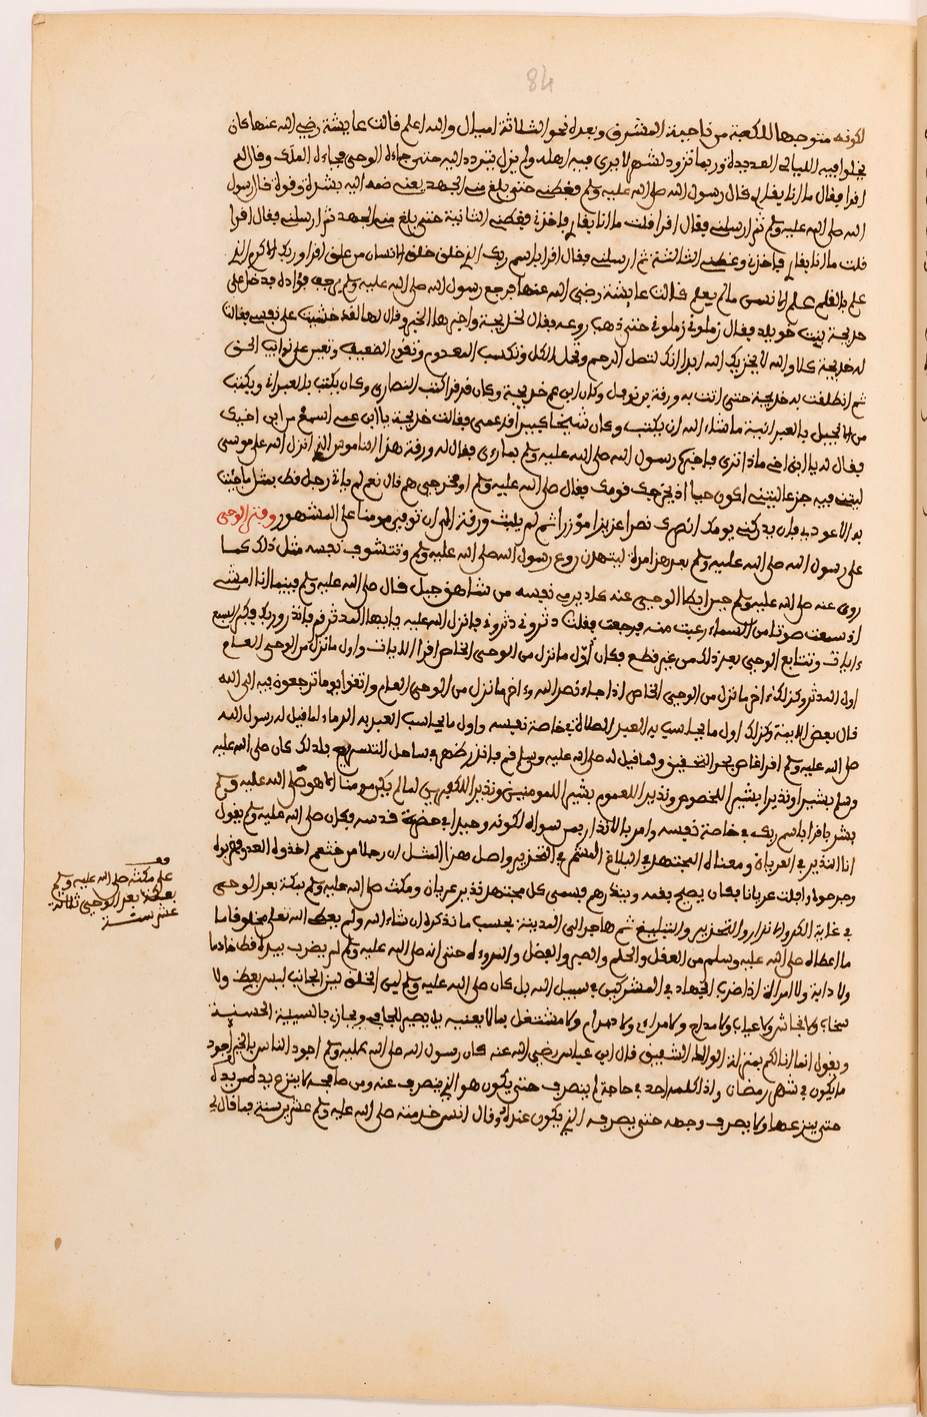 84
لكونه متوجها للكعبة من ناحية المشرق وبعده نحو الثلاثة اميال والله اعلم قالت عايشة رضي الله عنها كان
يخلوا فيه الليالي العديدة وربما تزود لشهر لا يرى فيه اهله ولم يزل يتردد اليه حتى جاءه الوحي فجاءه الملك وقال له
اقرا فقال ما انا بقارئ قال رسول الله صلى الله عليه وسلم فغطني حتى بلغ مني الجهد يعني ضمه اليه بشدة وقوة قال رسول
الله صلى الله عليه وسلم ثم ارسلني فقال اقرا قلت ما انا بقارئ فاخذني فغطني الثانية حتى بلغ مني الجهد ثم ارسلني فقال اقرا
قلت ما انا بقارئ فاخذني وغطني الثالثة ثم ارسلني فقال اقرا باسم ربك الذي خلق خلق الانسان من علق اقرا وربك الاكرم الذي
علم بالقلم علم الانسان ما لم يعلم قالت عايشة رضي الله عنها فرجع رسول الله صلى الله عليه وسلم يرجف فؤاده فدخل على
خديجة بنت خويلد فقال زملوني زملوني حتى ذهب روعه فقال لخديجة واخبرها الخبر وقال لها لقد خشيت على نفسي فقالت
له خديجة كلا والله لا يخزيك الله ابدا انك لتصل الرحم وتحمل الكل وتكسب المعدوم وتقري الضعيف وتعين على نوايب الحق
ثم انطلقت به خديجة حتى اتت به ورقة بن نوفل وكان ابن عم خديجة وكان قد قرا كتب النصارى وكان يكتب بالعبراني ويكتب
من الانجيل بالعبرانية ما شاء الله ان يكتب وكان شيخا كبيرا قد عمى فقالت خديجة يا ابن عمي اسمع من ابن اخيك
فقال له يا ابن اخي ماذا ترى فاخبره رسول الله صلى الله عليه وسلم بما روى فقال له ورقة هذا الناموس الذي انزل الله على موسى
ليتني فيه جذعا ليتني اكون حيا اذ يخرجك قومك فقال صلى الله عليه وسلم او مخرجي هم قال نعم لم يات رجل قط بمثل ما جئت
به الا عودي فان يدركني يومك انصرك نصرا عزيزا مؤزرا ثم لم يلبث ورقة الى ان توفي مومنا على المشهور وفتر الوحي
على رسول الله صلى الله عليه وسلم بعد هذا مدة ليتهدن روع رسول الله صلى الله عليه وسلم وتتشوف نفسه مثل ذلك كما
روي عنه صلى الله عليه وسلم حين ابطا الوحي عنه كاد يرمي نفسه من شاهق جبل قال صلى الله عليه وسلم بينما انا امشي
اذ سمعت صوتا من السماء رعبت منه فرجعت فقلت دثروني دثروني فانزل الله عليه يا ايها المدثر قم فانذر وربك فكبر السبع
ءايات وتتابع الوحي بعد ذلك من غير قطع فكان اول ما نزل من الوحي الخاص اقرا الايات واول ما نزل من الوحي العام
اول المدثر وكذلك ءاخر ما نزل من الوحي الخاص اذا جاء نصر الله وءاخر ما نزل من الوحي العام واتقوا يوما ترجعون فيه الى الله
قال بعض الايمة وكذلك اول ما يحاسب به العبد الصلاة في خاصة نفسه واول ما يحاسب العبد به الدماء لما قيل له رسول الله
صلى الله عليه وسلم اقرا فاض بحر التحقيق ولما قيل له صلى الله عليه وسلم قم فانذر فلذلك كان صلى الله عليه
وسلم بشيرا ونذيرا بشيرا للخصوص ونذيرا للعموم بشيرا للمومنين ونذيرا للكافرين لما لم يكن مومنا الا هو صلى الله عليه وسلم
بشر باقرا باسم ربك في خاصة نفسه وامر بالانذار لمن سواه لكونه وحيدا في حضرة قدسه فكان صلى الله عليه وسلم يقول
انا النذير العريان ومعناه المجتهد في البلاغ المشمر في التحذير واصل هذا المثل ان رجلا من خثعم اخذه العدو فقيدوه
وجردوه وافلت عريانا فكان يصيح بقومه وينذرهم فسمي كل مجتهد نذير عريان ومكث صلى الله عليه وسلم بمكة بعد الوحي
في غاية الكد والانذار والتحذير والتبليغ ثم هاجر الى المدينة بحسب ما نذكره ان شاء الله ولم يعط الله تعلى مخلوقا ما
ما اعطاه صلى الله عليه وسلم من العقل والحلم والصبر والفضل والمروءة حتى انه صلى الله عليه وسلم لم يضرب بيده قط خادما
ولا دابة ولا امراة اذا ضرب الجهاد في المشركين في سبيل الله بل كان صلى الله عليه وسلم لين الخلق لين الجانب ليس بفظ ولا
سخاب ولا فحاش ولا عياب ولا مداح ولا مراء ولا مشتغل بما لا يعنيه بل يصبر للجافي ويجازي بالسيئة الحسنة
ويقول انما انا لكم بمنزلة الوالد الشفيق قال ابن عباس رضي الله عنه كان رسول الله صلى الله عليه وسلم اجود الناس بالخير واجود
ما يكون في شهر رمضان واذا كلمه احد في حاجة لم ينصرف حتى يكون هو الذي ينصرف عنه ومن صافحه لا ينزع يده من يده
حتى ينزعها ولا يصرف وجهه حتى يصرفه الذي يكون عنده وقال انس خدمته صلى الله عليه وسلم عشر سنين فما قال لي
قف
على مكثه صلى الله عليه وسلم
بمكة بعد الوحي ثلاثة
عشر سنة